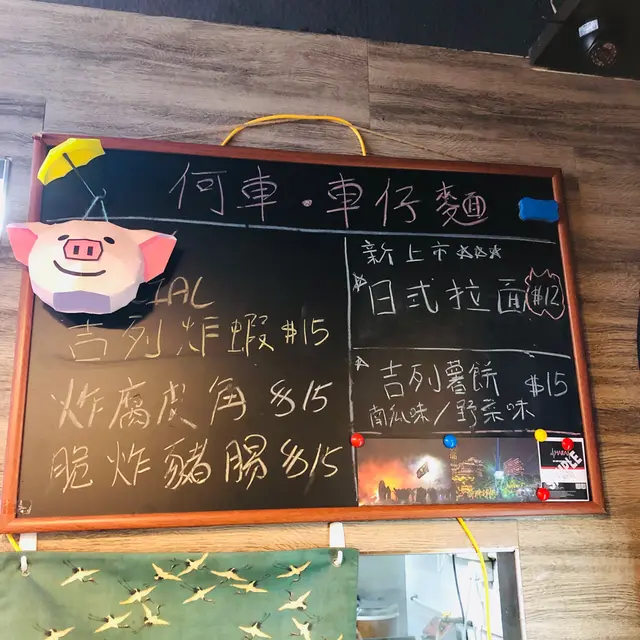 何車·車仔麵
CIAL
吉列炸蝦 $15
炸腐皮角 $15
脆炸豬腸 $15
新上市
日式拉面 $12
吉列薯餅 $15
南瓜味/野菜味